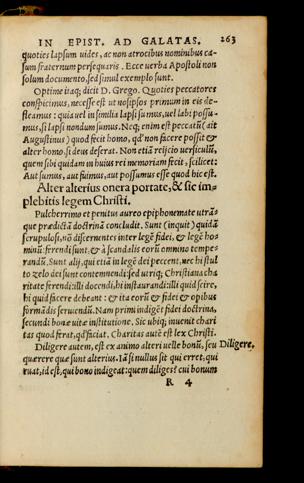 IN EPIST. AD GALATAS. 263
quoties lapsum uides, ac non atrocibus nominibus ca-
sum fraternum persequaris. Ecce uerba Apostoli non
solum documento, sed simul exemplo sunt.
Optime itaq; dicit D. Grego. Quoties peccatores
conspicimus, necesse est ut nosipsos primum in eis de-
fleamus: quia uel in similia lapsi sumus, uel labi possu-
mus, si lapsi nondum sumus. Neq; enim est peccatũ (ait
Augustinus) quod fecit homo, qđ non facere possit &
alter homo, si deus deserat. Non etiã reijcio uersiculũ,
quem sibi quidam in huius rei memoriam fecit, scilicet:
Aut sumus, aut fuimus, aut possumus esse quod hic est.
Alter alterius onera portate, & sic im-
plebitis legem Christi.
Pulcherrimo et penitus aureo epiphonemate utrã-
que prædictã doctrinã concludit. Sunt (inquit) quidã
scrupulosi, nõ discernentes inter legẽ fidei, & legẽ ho-
minũ: ferendi sunt, & à scandalis eorũ omnino tempe-
randũ. Sunt alij, qui etiã in legẽ dei peccent, nec hi stul
to zelo dei sunt contemnendi: sed utriq; Christiana cha
ritate ferendi: illi docendi, hi instaurandi: illi quid scire,
hi quid facere debeant: & ita eorũ & fidei & opibus
formãdis seruiendũ. Nam primi indigẽt fidei doctrina,
secundi bonæ uitæ institutione. Sic ubiq; inuenit chari
tas quod ferat, qđ faciat. Charitas autẽ est lex Christi.
Diligere autem, est ex animo alteri uelle bonũ, seu Diligere.
quærere quæ sunt alterius. Iã si nullus sit qui erret, qui
ruat, id est, qui bono indigeat: quem diliges? cui bonum
R 4